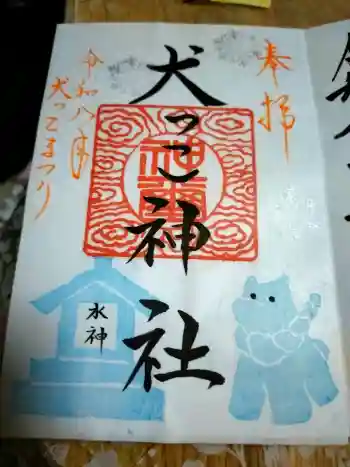 奉拝
犬っこ神社
令和八年
犬っこまつり
水神